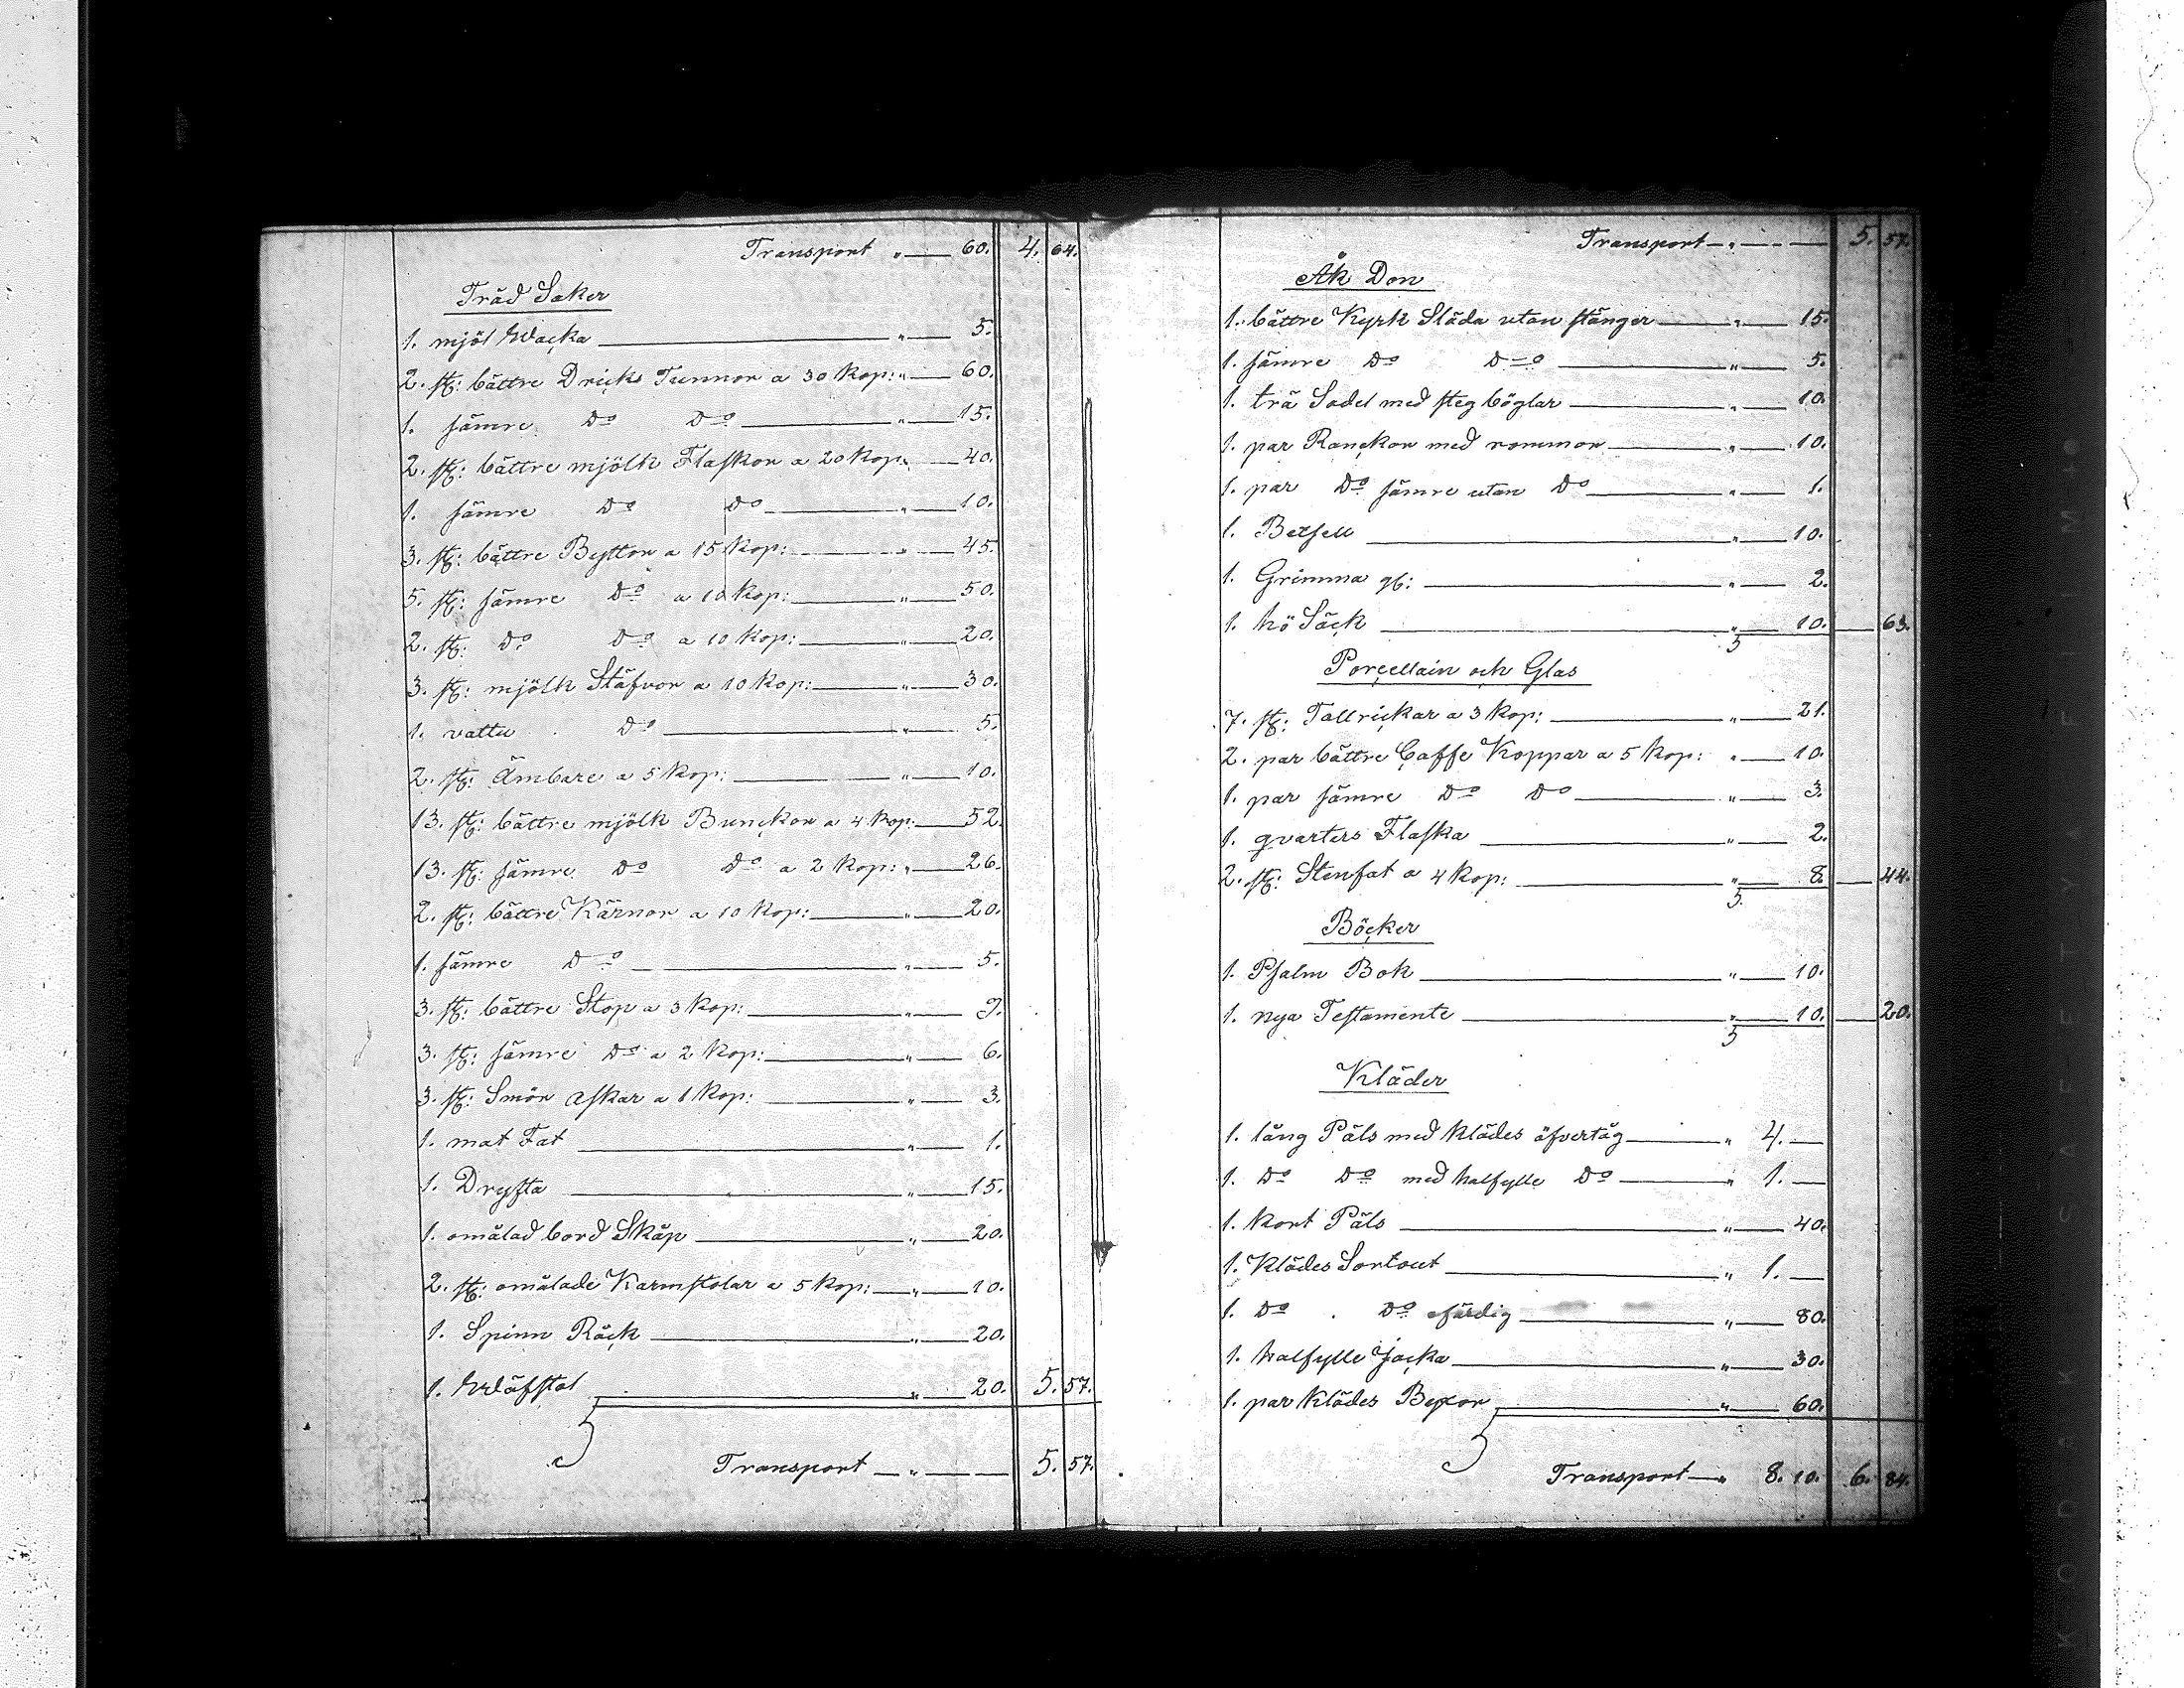 Transport " 60. 4. 64.
Träd Saker
1. mjöl Wacka " 5.
2. st: bättre Dricks Tunnor a 30 Kop: " 60.
1. sämre Do Do " 15.
2. st: bättre mjölk Flaskor a 20 Kop: 40.
1. sämre Do Do " 10.
3. st: bättre Byttor a 15 Kop: " 45.
5. st: sämre Do a 10 Kop: " 50.
2. st: Do Do a 10 Kop: " 20.
3. st: mjölk Stäfvor a 10 Kop: " 30.
1. vattu Do " 5.
2. st: Ämbare a 5 Kop: " 10.
13. st: bättre mjölk Bunckor a 4 Kop: 52.
13. st: sämre Do Do a 2 Kop: " 26.
2. st: bättre Kärnor a 10 Kop: " 20.
1. sämre Do " 5.
3. st: bättre Stop a 3 Kop: " 9.
3. st: sämre Do a 2 Kop: " 6.
3. st: Smör askar a 1 Kop: " 3.
1. mat Fat " 1.
1. Dryfta " 15.
1. omålad bord Skåp " 20.
2. st: omålade Karmstolar a 5 Kop: " 10.
1. Spinn Råck " 20.
1. Wäfstol " 20. 5. 57.
Transport " 5. 57.
Transport " 5. 57.
Åk Don
1. bättre Kyrk Släda utan stänger " 15.
1. sämre Do Do " 5.
1. trä Sadel med steg böglar " 10.
1. par Ranckor med rommor " 10.
1. par Do sämre utan Do " 1.
1. Betsell " 10.
1. Grimma gl: " 2.
1. hö Säck " 10. 63.
Porcellain och Glas
7. st: Tallrickar a 3 Kop: " 21.
2. par bättre Caffe Koppar a 5 Kop: " 10.
1. par sämre Do Do " 3.
1. qvarters Flaska " 2.
2. st: Stenfat a 4 Kop: " 8. 44.
Böcker
1. Psalm Bok " 10.
1. nya Testamente " 10. 20.
Kläder
1. lång Päls med Klädes öfvertåg " 4.
1. Do Do med halfylle Do " 1.
1. Kort Päls " 40.
1. Klädes Sortout " 1.
1. Do Do ofärdig " 80.
1. halfylle Jacka " 30.
1. par Klädes Bexor " 60.
Transport " 8. 10. 6. 84.
KODAK SAFETY FILM